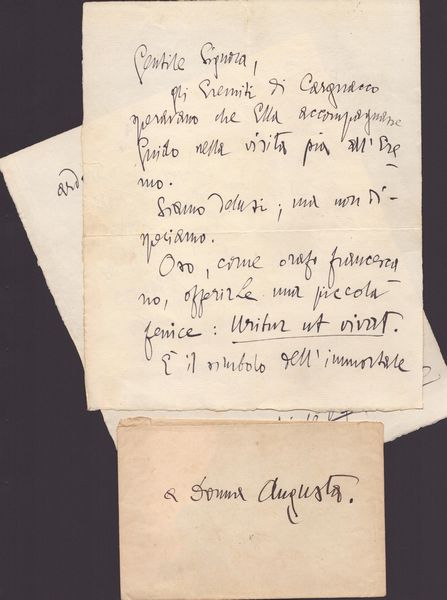 Gentile Signora,
gli Eremiti di Cargnacco
speravano che Ella accompagnasse
Guido nella visita pia all'Ere
mo.
Siamo delusi; ma non di-
speriamo.
Oso, come orafo francesca
no, offrirLe una piccola
fenice: Uritur ut vivat.
È il simbolo dell'immortale
ard
a Donna Augusta.